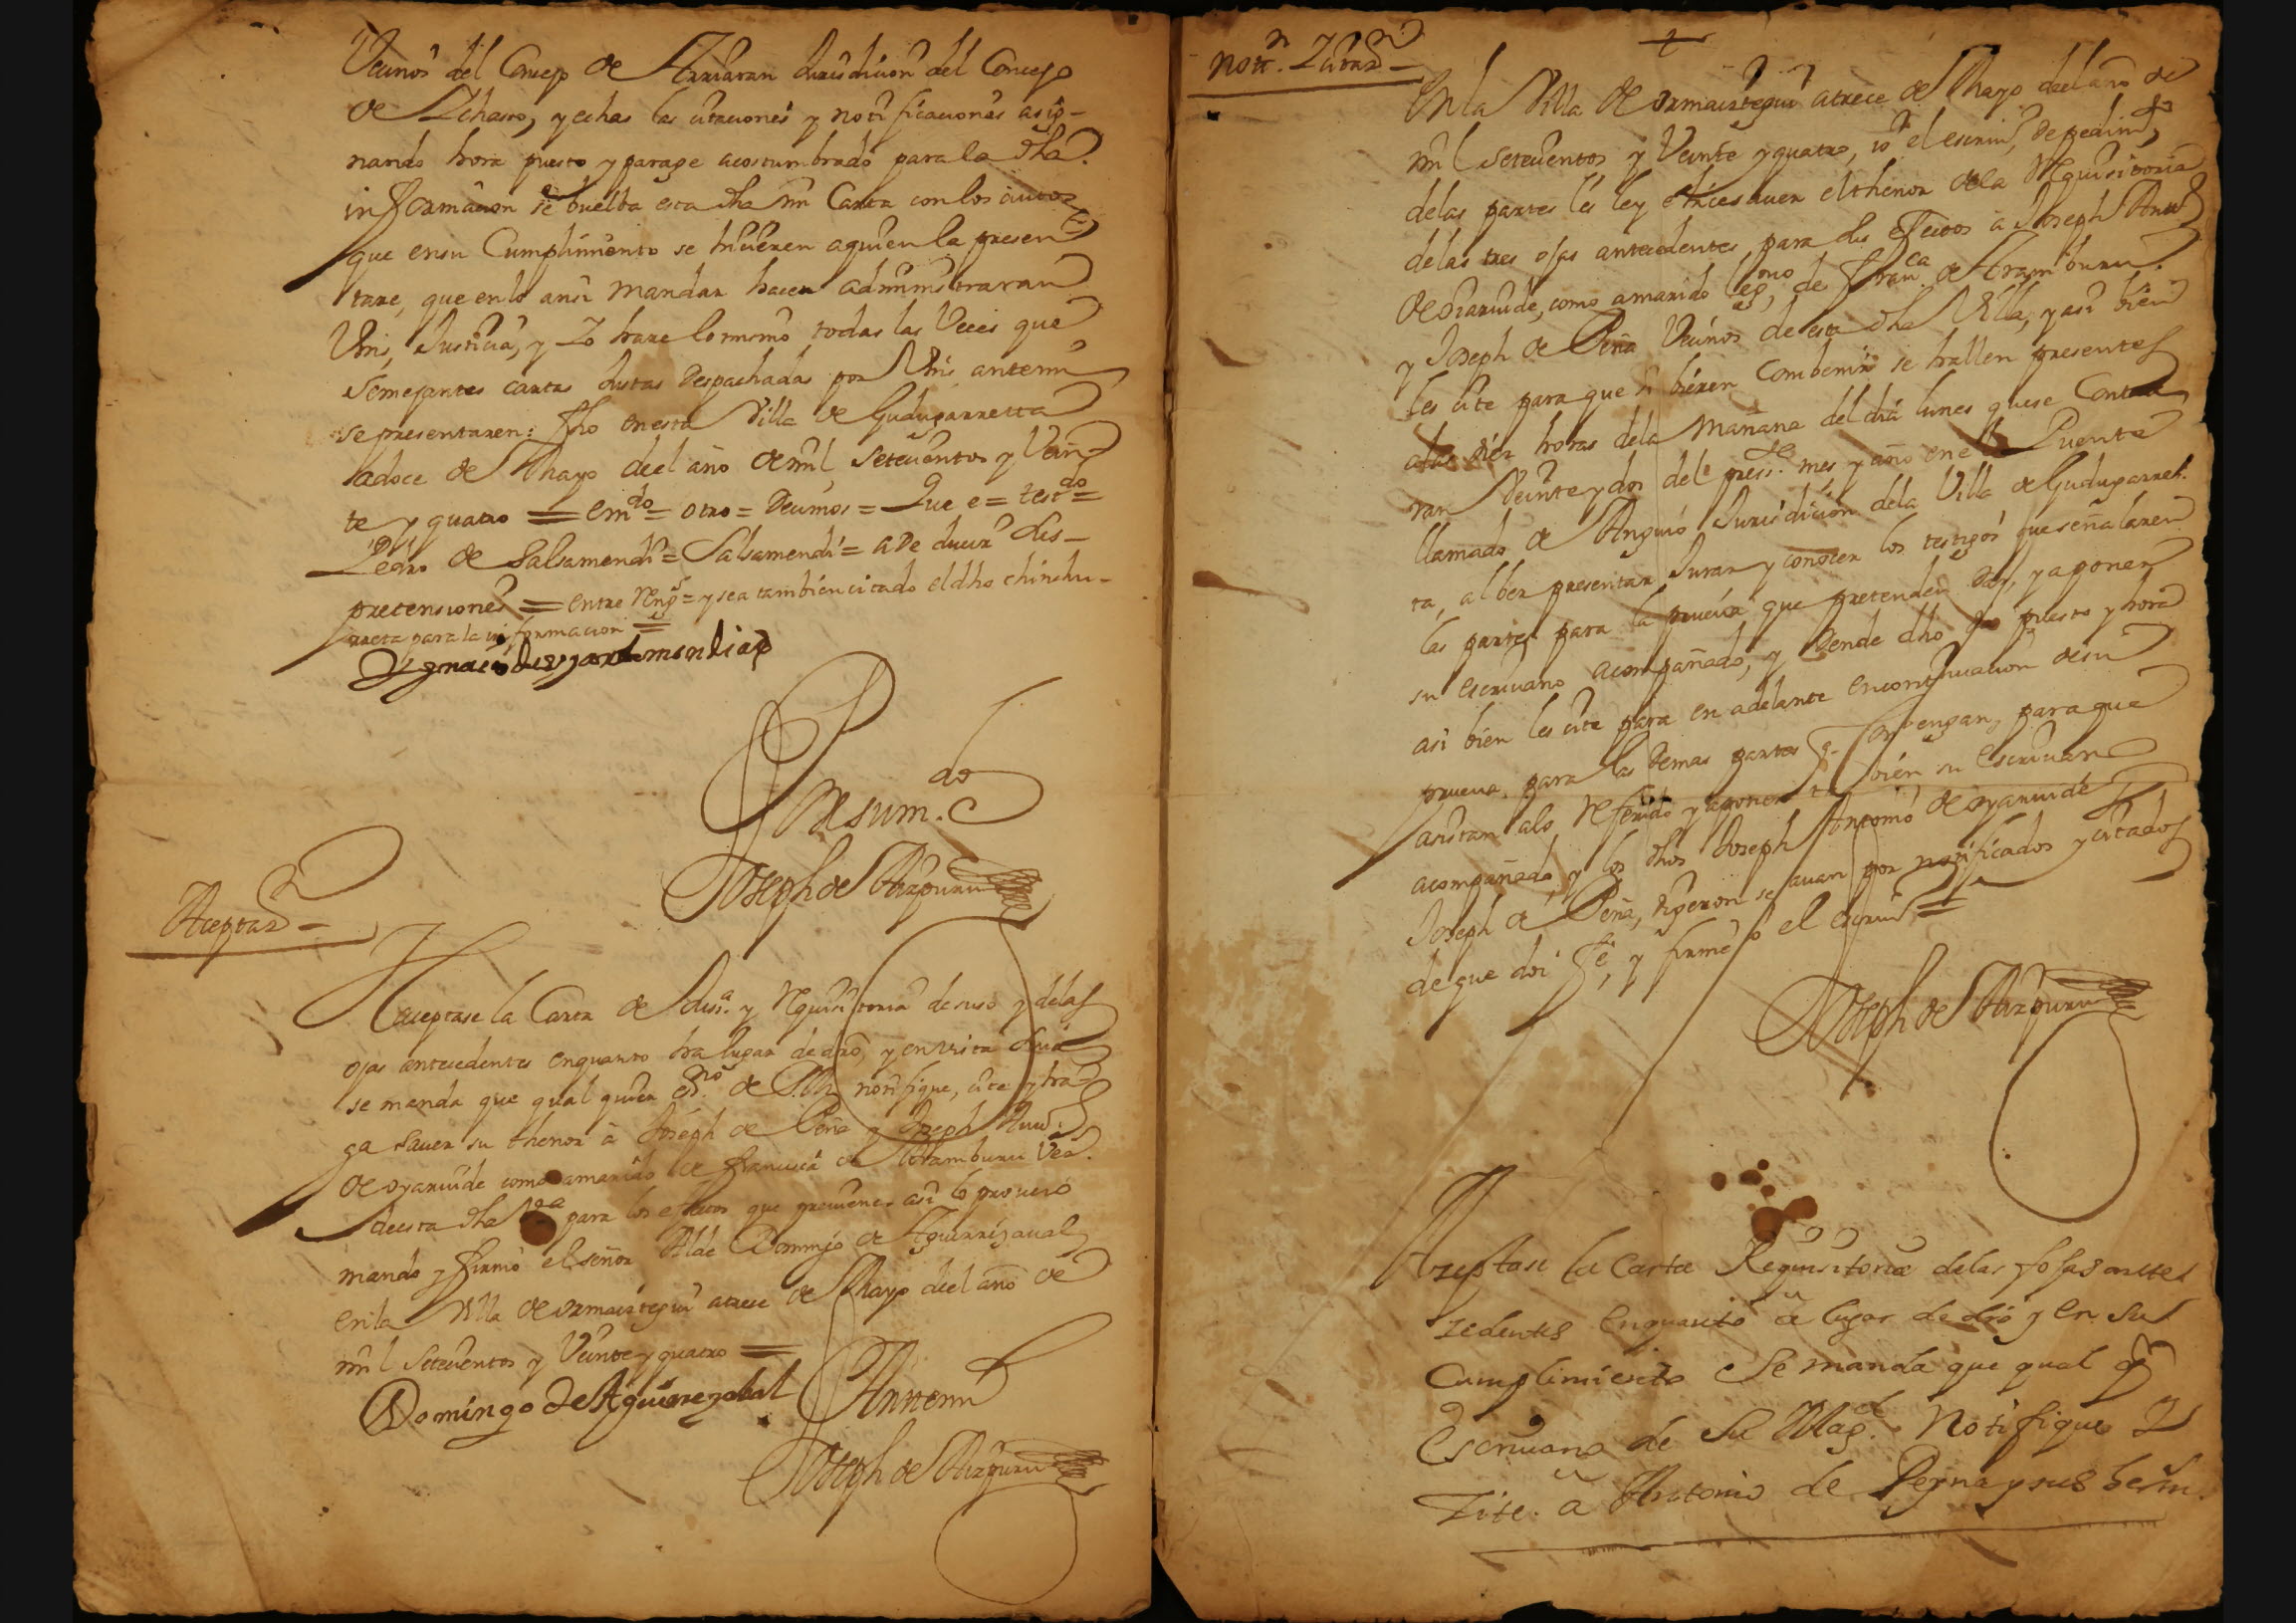 Veçinos del Conçejo de Arriaran Jurisdiçion del Conçejo
de Ichaso, y echas las çitaçiones y notificaçiones asig-
nando hora puesto y paraje acostumbrado para la dha
informaçion se buelba esta dha mi Carta con los autos
que en su Cumplimiento se hiçieren a quien la presen
tare, que en lo ansi mandar haçer administraran
Vms, Justiçia, y Yo hare lo mismo todas las Veçes que
semejantes cartas Justas despachadas por Vms, ante mi
se presentaren: fho en esta Villa de Gudugarretta
a doce de Mayo de el año de mil seteçientos y Vein
te y quatro = em.do = otro = Deçimos = Que e = test.do =
Pedro de Salsamendi = Salsamendi = a deduçir dis-
pretensiones = entre Reng.s = y sea tambien citado el dho chinchu-
rreta para la informacion =
Ygnaçio de
Por su m.do
Joseph de Aizpuru
Aceptaz.n
Açeptase la Carta de Jus.a y Requisitoria de suso y de las
ojas anteçedentes en quanto ha lugar de dro, y en vista
se manda que qual quiera es.no de S.M. notifique, çite y ha
ga saver su thenor à Joseph de Peña y Joseph Anto.
de oyarvide como a marido de Françisca de Aramburu Veç.
de esta dha V.a para los efectos que previene, asi lo proveió
mandó y firmó el señor Alde Domingo de Aguirrezaval
en la Villa de ormaiztegui a treçe de Mayo de el año de
mil seteçientos y Veinte y quatro =
Domingo de Aguirrezabal Ante mi
Joseph de Aizpuru
Notif.n Zitaz.n
+
En la Villa de ormaiztegui a treçe de Mayo de el año de
mil seteçientos y Veinte y quatro, io el escriu.o de pedim.to
de las partes les ley e hiçe saver el thenor de la Requisitoria
de las tres ojas anteçedentes, para sus efectos a Joseph Anto.
de oiarvide, como a marido leg.mo de Fran.ca de Aramburu
y Joseph de Peña Veçinos de esta dha Villa, y asi bien
les çite para que si bieren Combenir se hallen presentes
a las diez horas de la Mañana del dia lunes que se Conta
ran Veinte y dos del pres.te mes y año en el Puente
llamado de Anguio Jurisdiçion de la Villa de Gudugarret.
ta, al ber presentar Jurar y conoçer los testigos que señalaren
las partes para la prueva que pretenden dar, y a poner
su escrivano acompañado, y dende dho puesto y hora
asi bien les çite para en adelante en continuaçion de su
prueva para las demas partes q. combengan, para que
asistan a lo referido y a poner tambien su escrivano
acompañado, y los dhos Joseph Antonio de oyarvide y
Joseph de Peña, digeron se avian por notificados y çitados
de que doi fe, y firmé io el escriu.o =
Joseph de Aizpuru
Azeptase la Carta Requisitoria de las fojas ante
zedentes en quanto à lugar de dro y en su
Cumplimiento Se manda que qual q.r
Escrivano de Su Mag.d Notifique y
Zite. à Antonio de Peyna y sus herm.